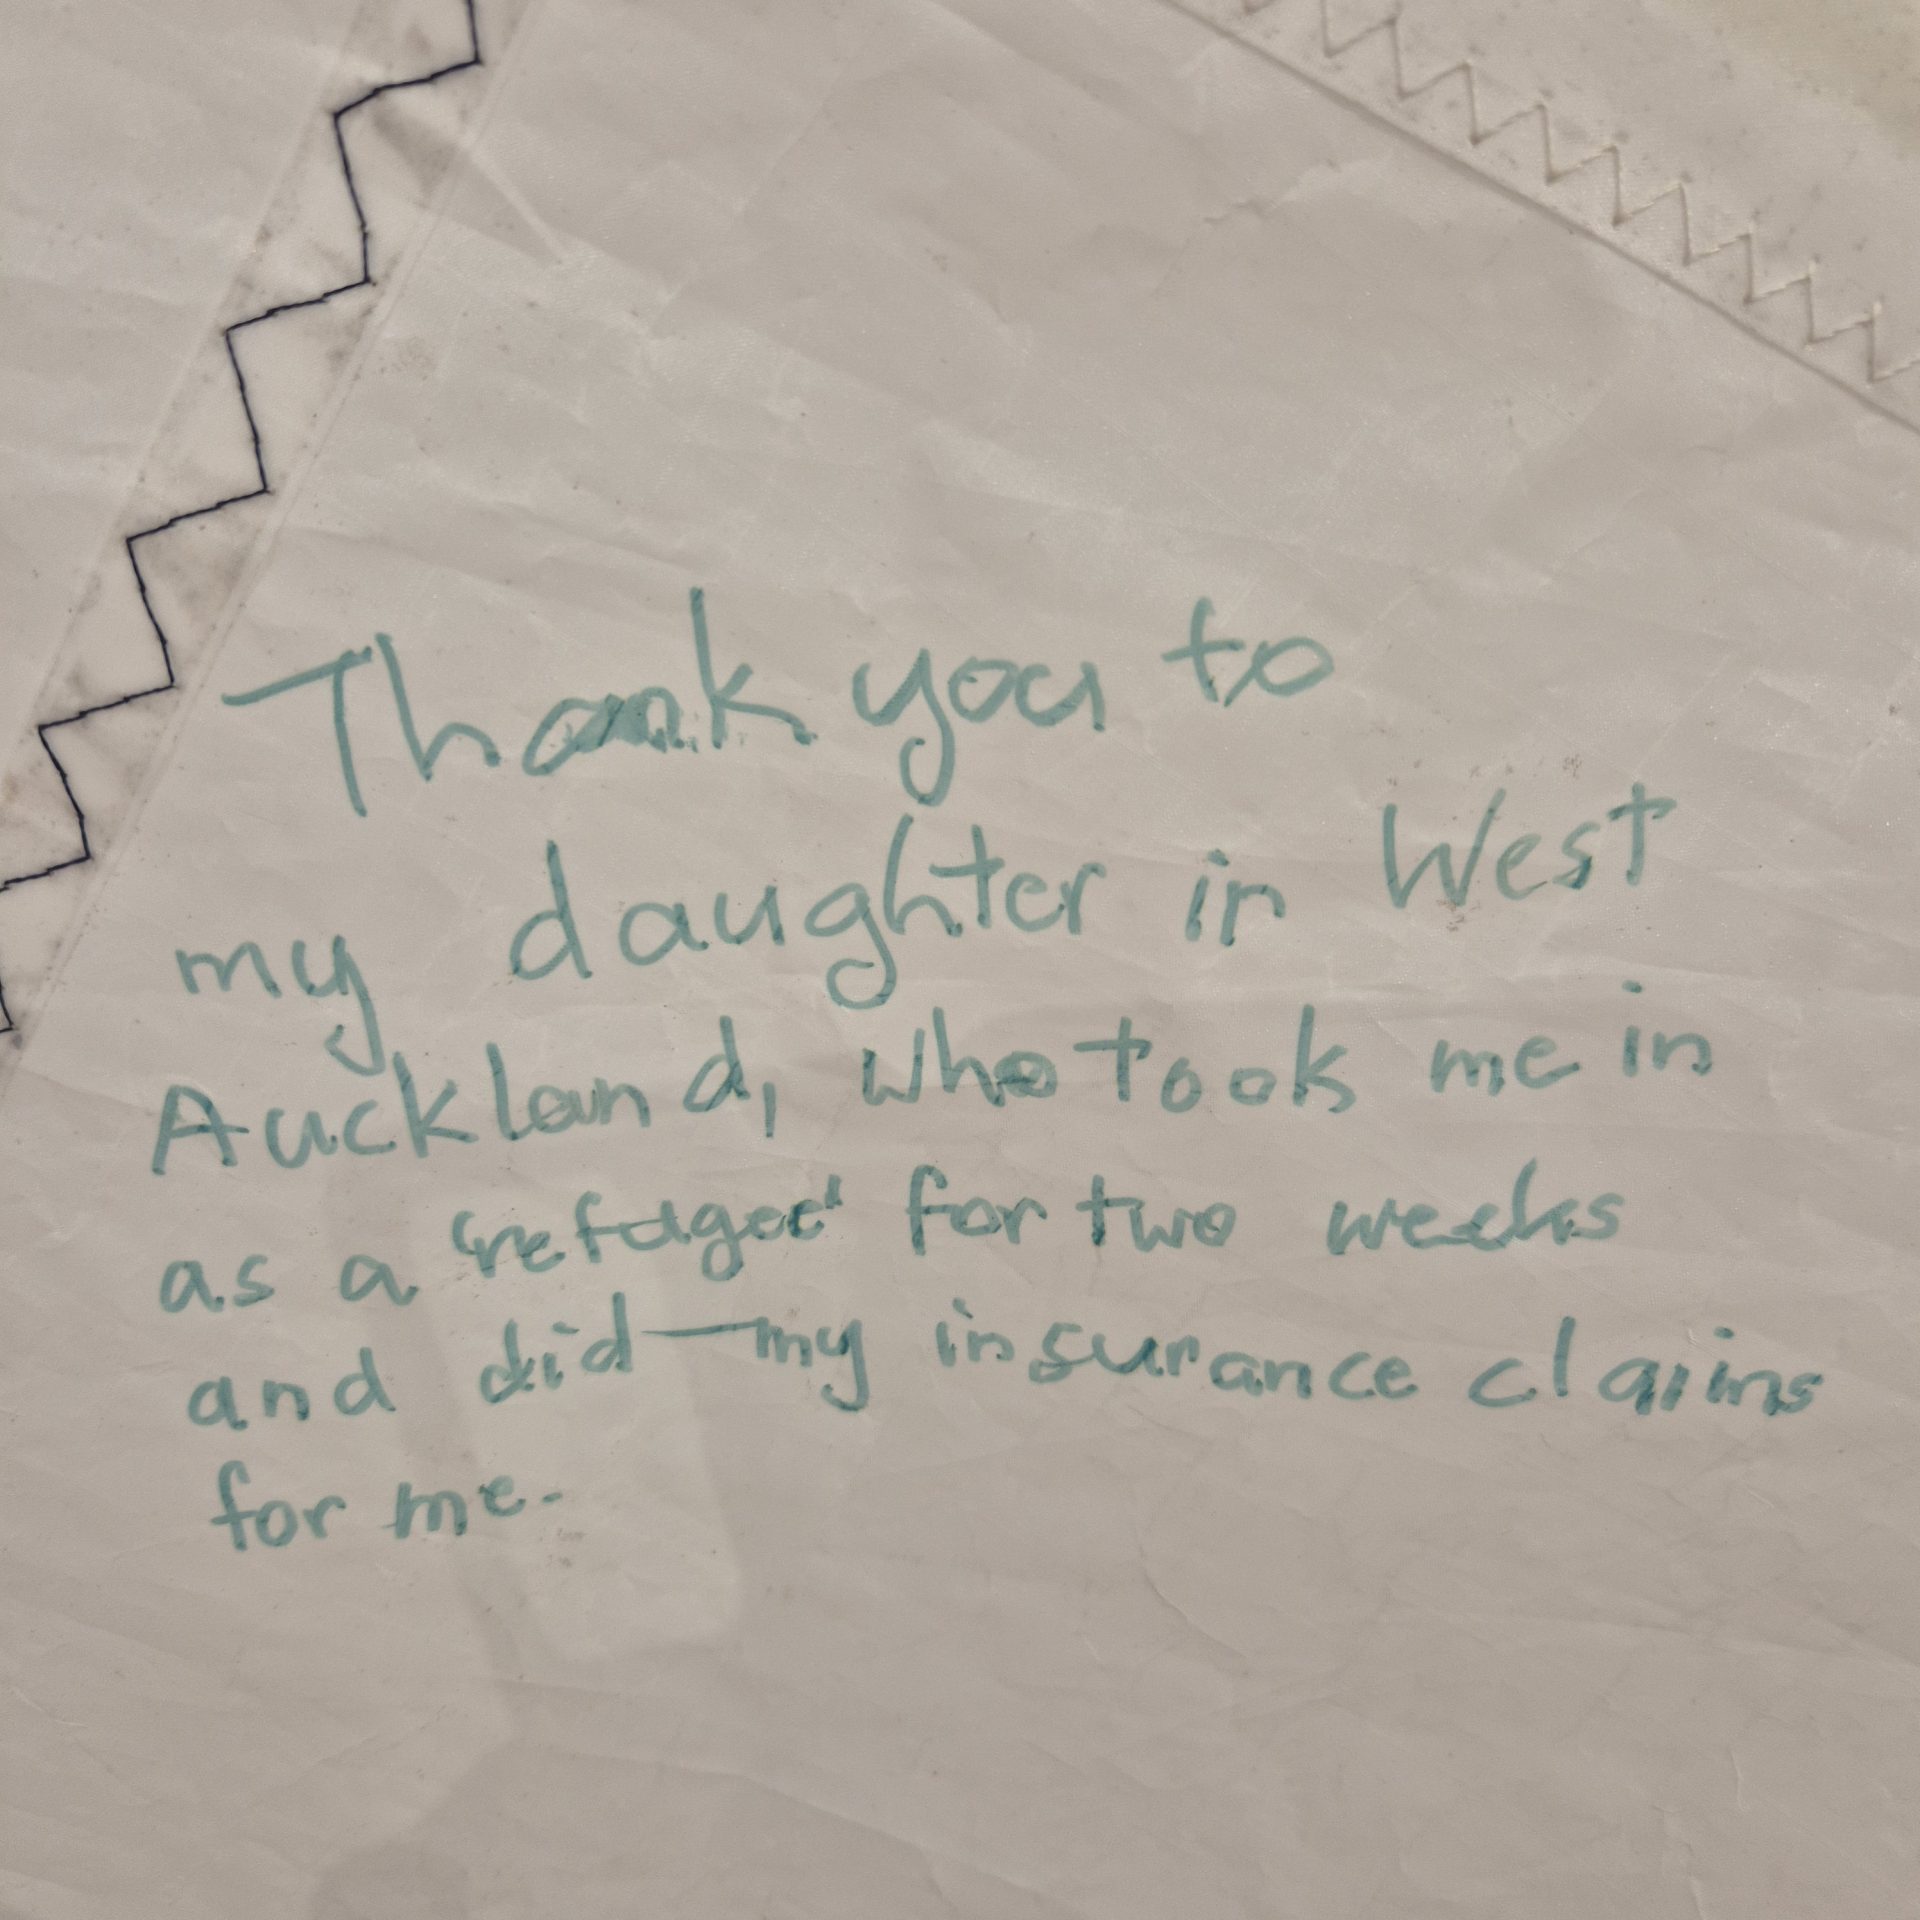 Thank you to
my daughter in West
Auckland, who took me in
as a "refugee" for two weeks
and did my insurance claims
for me.